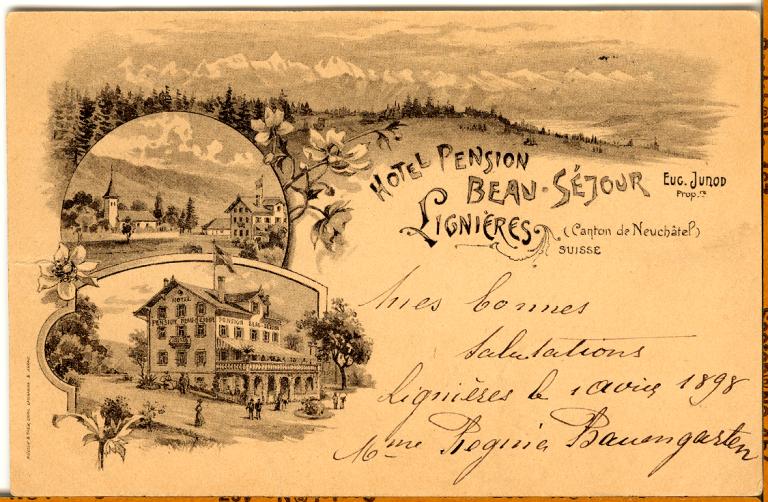 HOTEL PENSION
BEAU-SÉJOUR
LIGNIÈRES
EUG. JUNOD
Prop.re
(Canton de Neuchâtel)
SUISSE
HOTEL
PENSION BEAU-SÉJOUR PENSION BEAU-SÉJOUR
Mes bonnes
salutations
Lignières le 1 avril 1898
Mme Regina Baumgarten